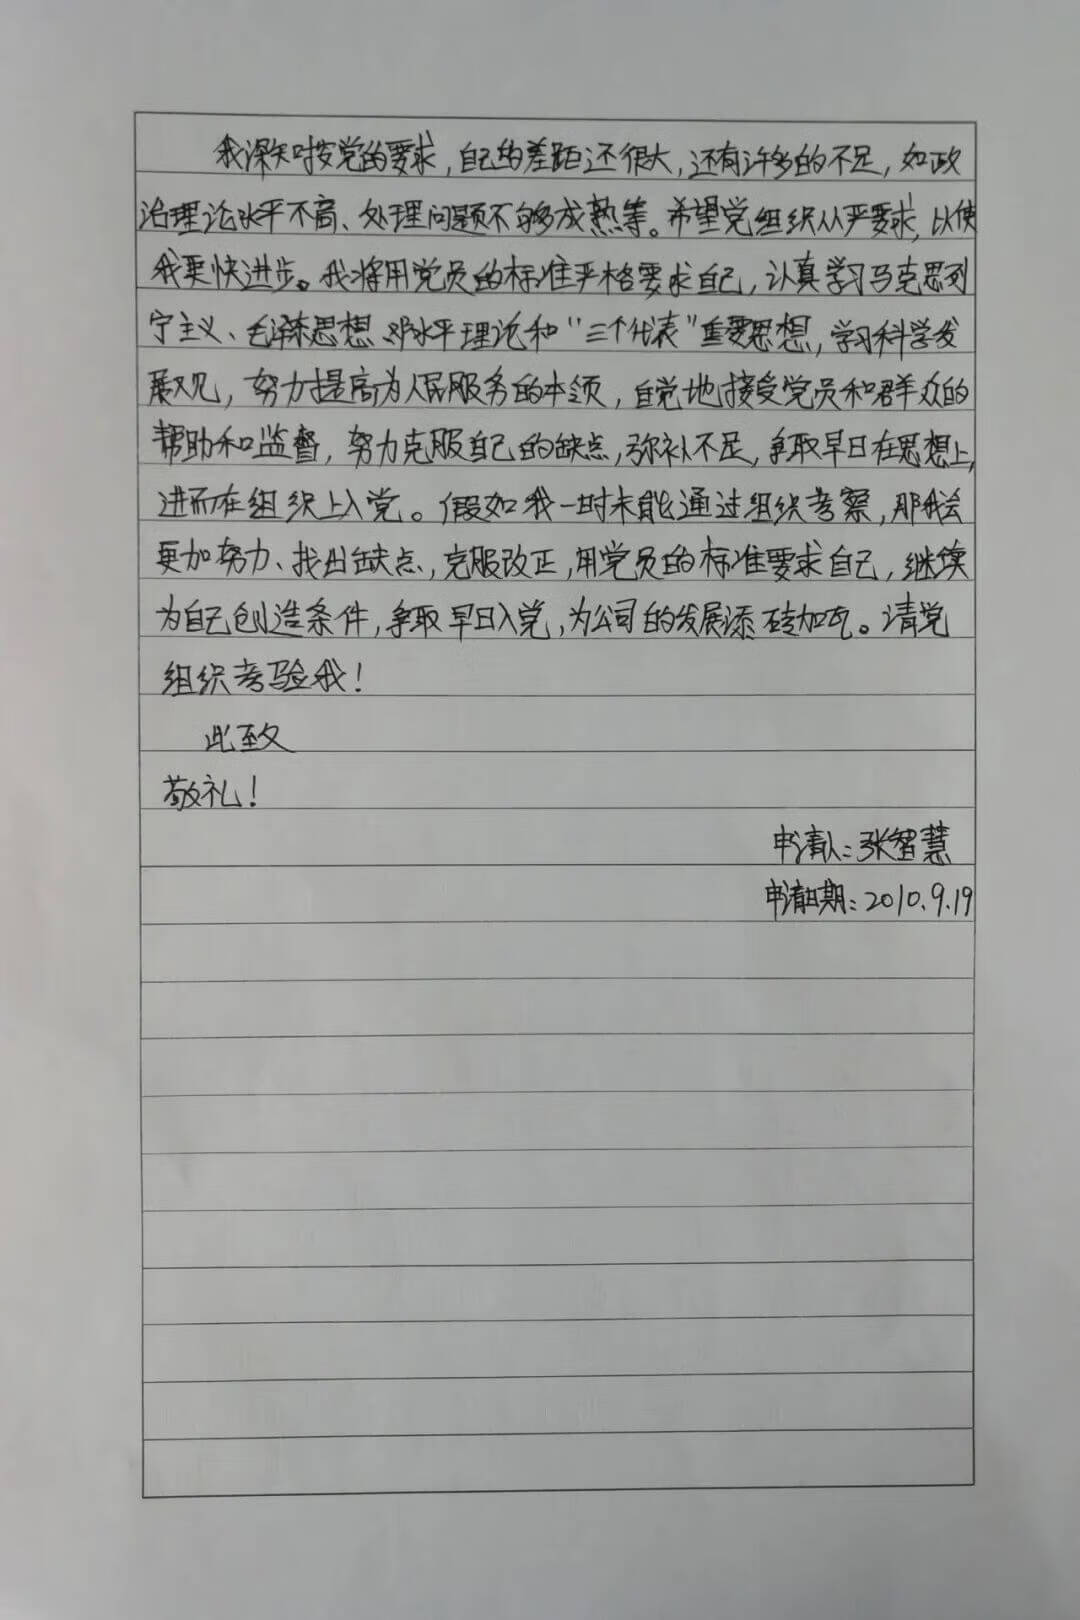 我深知按党的要求，自己的差距还很大，还有许多的不足，如政
治理论水平不高、处理问题不够成熟等。希望党组织从严要求，以使
我更快进步。我将用党员的标准严格要求自己，认真学习马克思列
宁主义、毛泽东思想、邓水平理论和“三个代表”重要思想，学习科学发
展观，努力提高为人民服务的本领，自觉地接受党员和群众的
帮助和监督，努力克服自己的缺点，弥补不足，争取早日在思想上，
进而在组织上入党。假如我一时未能通过组织考察，那我会
更加努力、找出缺点，克服改正，用党员的标准要求自己，继续
为自己创造条件，争取早日入党，为公司的发展添砖加瓦。请党
组织考验我！
此致
敬礼！
申请人：张智慧
申请日期：2010.9.19